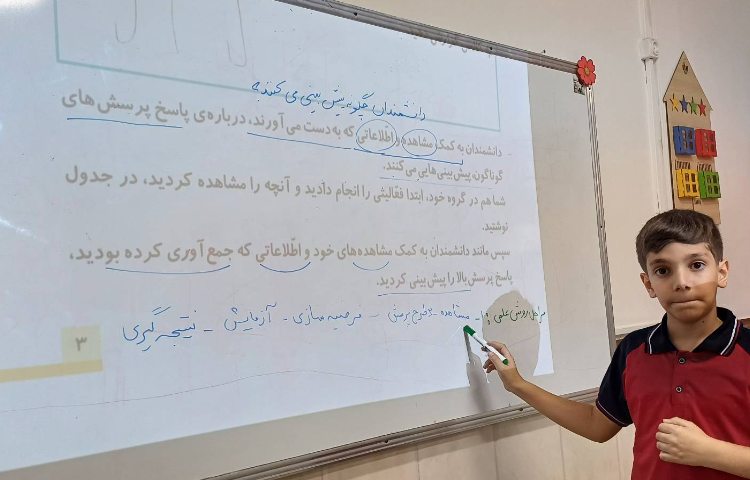 دانشمندان چگونه پیش بینی می کنند؟
دانشمندان به کمک مشاهده و اطّلاعاتی که به دست می آورند، درباره‌ی پاسخ پرسش های
گوناگون، پیش بینی هایی می کنند.
شما هم در گروه خود، ابتدا فعّالیتی را انجام دادید و آنچه را مشاهده کردید، در جدول
نوشتید.
سپس مانند دانشمندان به کمک مشاهده‌های خود و اطّلاعاتی که جمع آوری کرده بودید،
پاسخ پرسش بالا را پیش بینی کردید.
مراحل روش علمی 1- مشاهده - طرح پرسش - فرضیه سازی - آزمایش - نتیجه گیری
۳